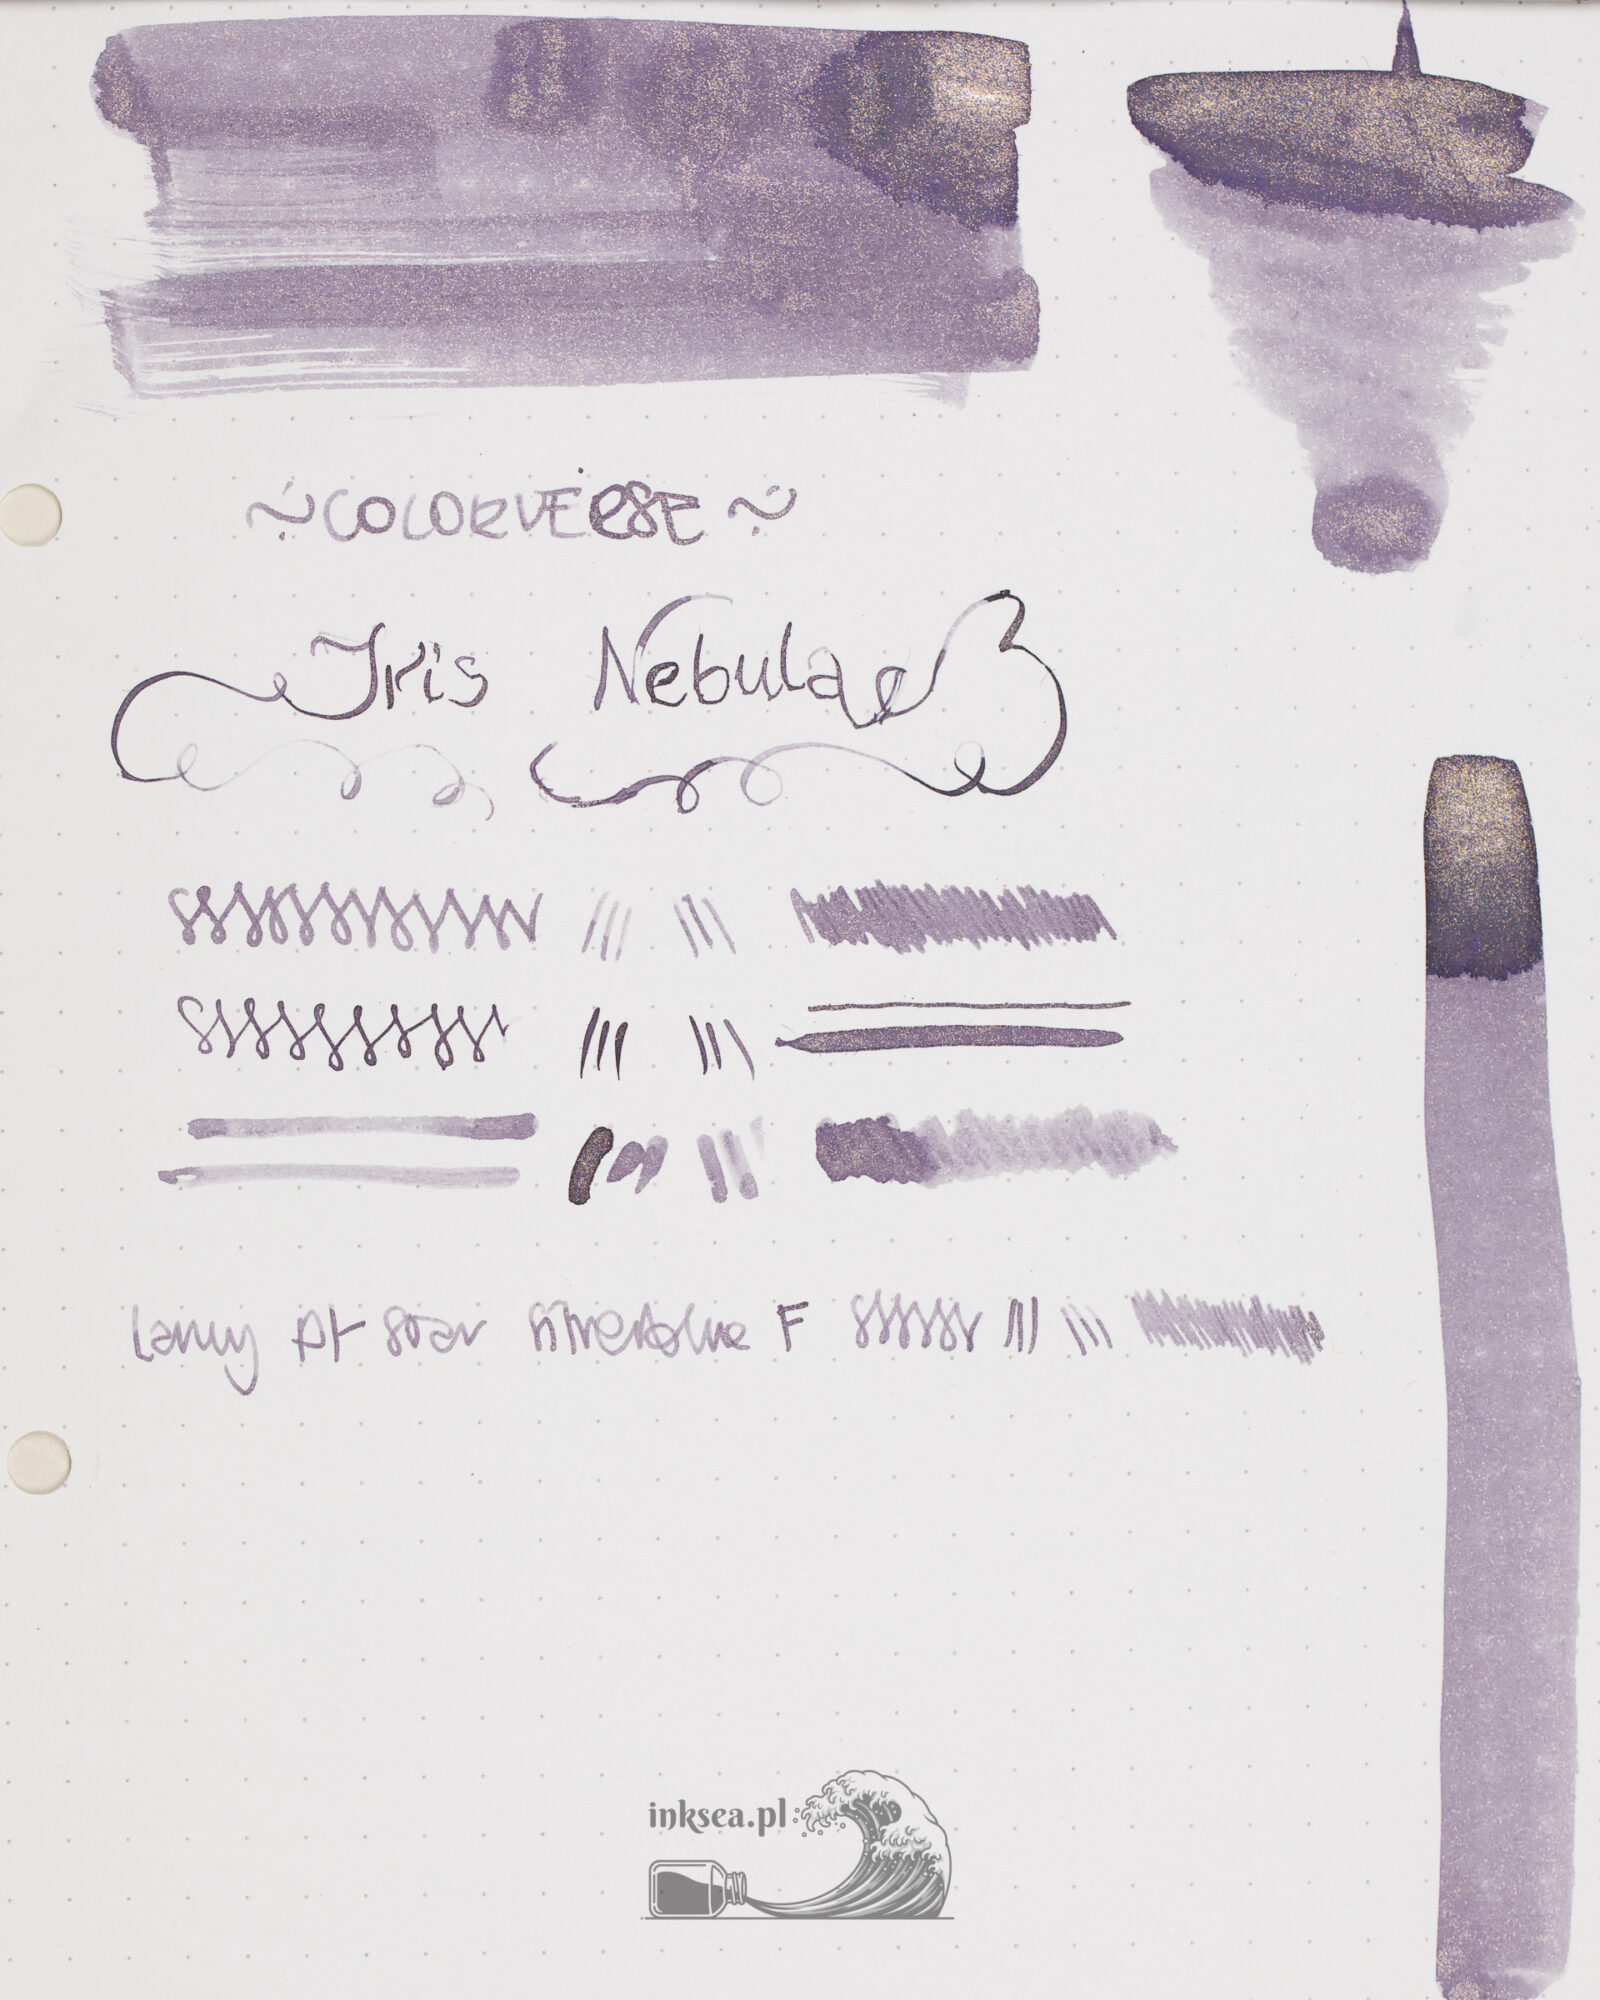 ~ COLORVERSE ~
Iris Nebula
Lamy Al-Star Silverblue F
inksea.pl